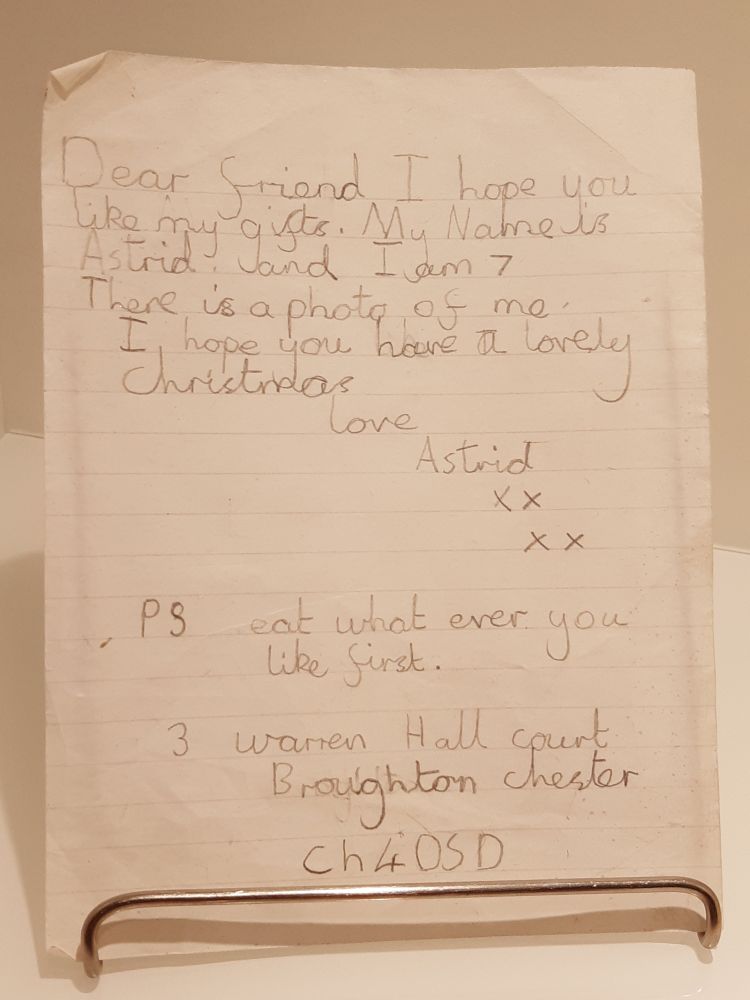 Dear friend I hope you
like my gifts. My Name is
Astrid. and I am 7
There is a photo of me.
I hope you have a lovely
Christmas
love
Astrid
xx
xx
PS eat what ever you
like first.
3 warren Hall court
Broughton chester
ch4 0SD